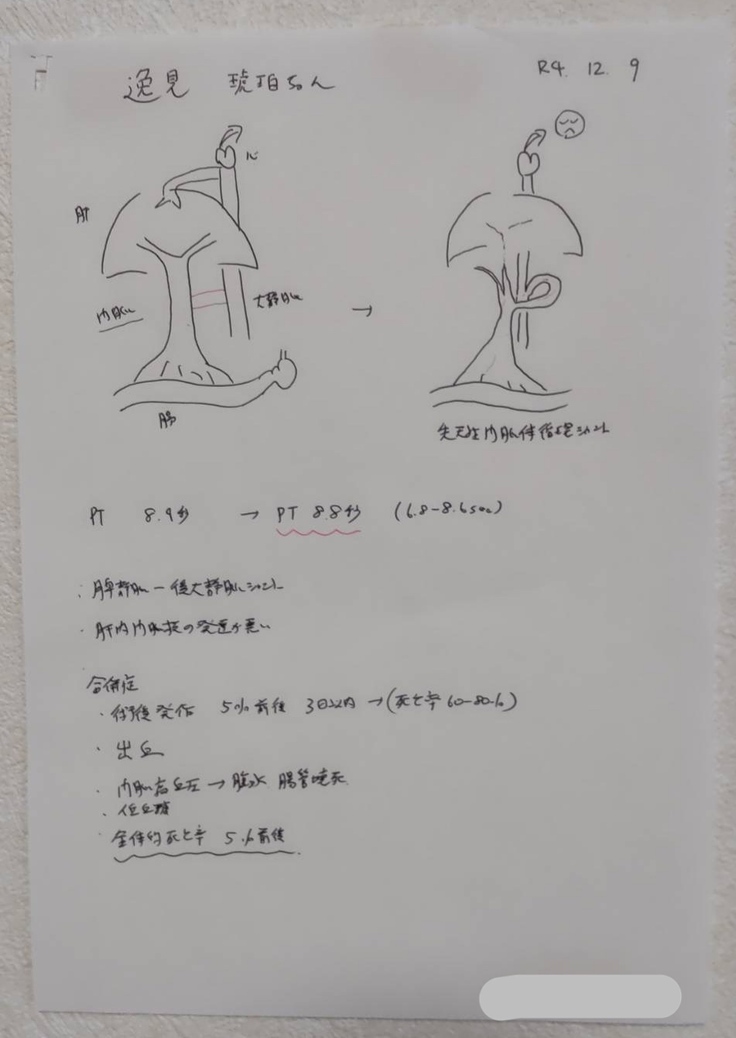 逸見 琥珀ちゃん
R4. 12. 9
心
肝
門脈
大静脈
→
腸
先天性門脈体循環シャント
PT 8.9秒 → PT 8.8秒 (6.8-8.6sec)
・脾静脈-後大静脈シャント
・肝内門脈枝の発達が悪い
合併症
・術後発作 5%前後 3日以内 →(死亡率 60-80%)
・出血
・門脈高血圧→腹水 腸管壊死
・低血糖
全体的死亡率 5%前後